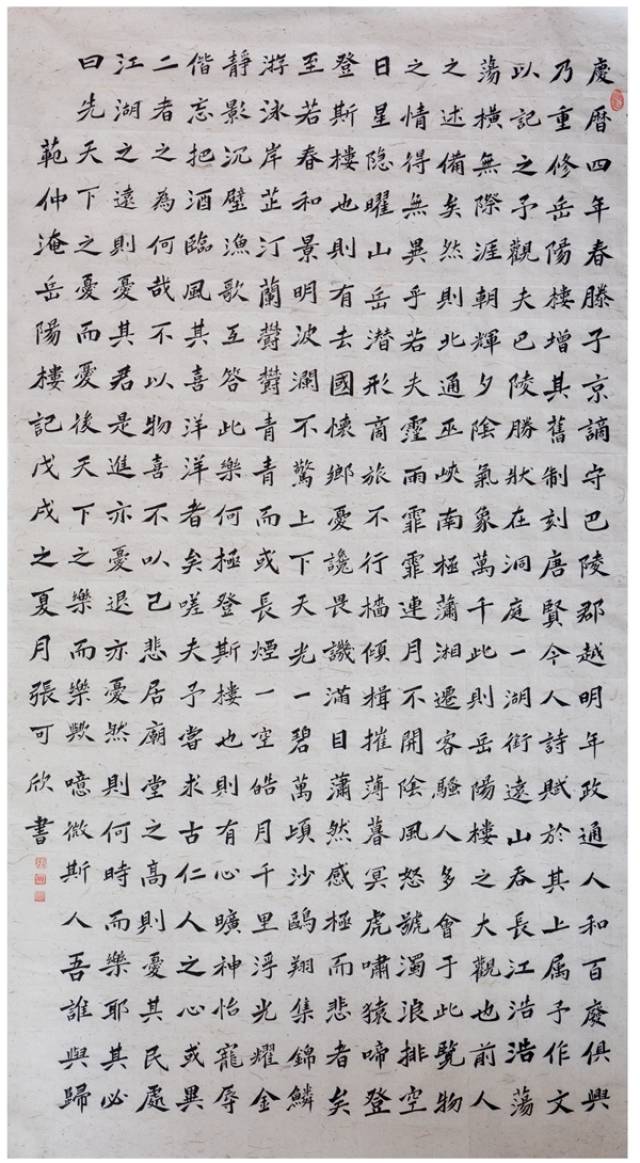 慶曆四年春滕子京謫守巴陵郡越明年政通人和百廢俱興
乃重修岳陽樓增其舊制刻唐賢今人詩賦於其上属予作文
以記之予觀夫巴陵勝狀在洞庭一湖銜遠山吞長江浩浩蕩
蕩橫無際涯朝輝夕陰氣象萬千此則岳陽樓之大觀也前人
之述備矣然則北通巫峽南極瀟湘遷客騷人多會于此覽物
之情得無異乎若夫霪雨霏霏連月不開陰風怒號濁浪排空
日星隐曜山岳潜形商旅不行檣傾楫摧薄暮冥虎嘯猿啼登
登斯樓也則有去國懷鄉憂讒畏譏滿目蕭然感極而悲者矣
至若春和景明波瀾不驚上下天光一碧萬頃沙鷗翔集錦鱗
游泳岸芷汀蘭欝欝青青而或長煙一空皓月千里浮光耀金
靜影沉璧漁歌互答此樂何極登斯樓也則有心曠神怡寵辱
偕忘把酒臨風其喜洋洋者矣嗟夫予嘗求古仁人之心或異
二者之為何哉不以物喜不以己悲居廟堂之高則憂其民處
江湖之遠則憂其君是進亦憂退亦憂然則何時而樂耶其必
曰先天下之憂而憂後天下之樂而樂歟噫微斯人吾誰與歸
範仲淹岳陽樓記戊戌之夏月張可欣書